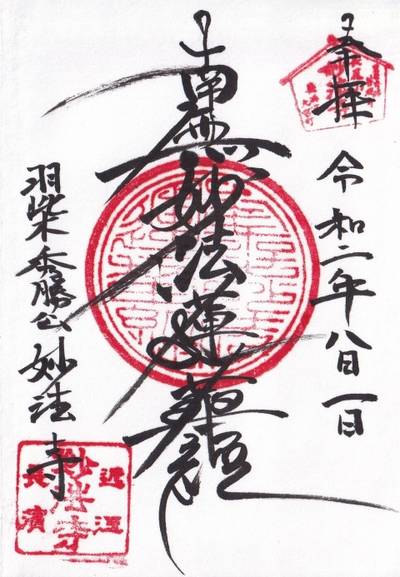 奉拝
令和二年八月一日
南無妙法蓮華経
羽柴秀勝公
妙法寺
近江
長濱
妙法寺